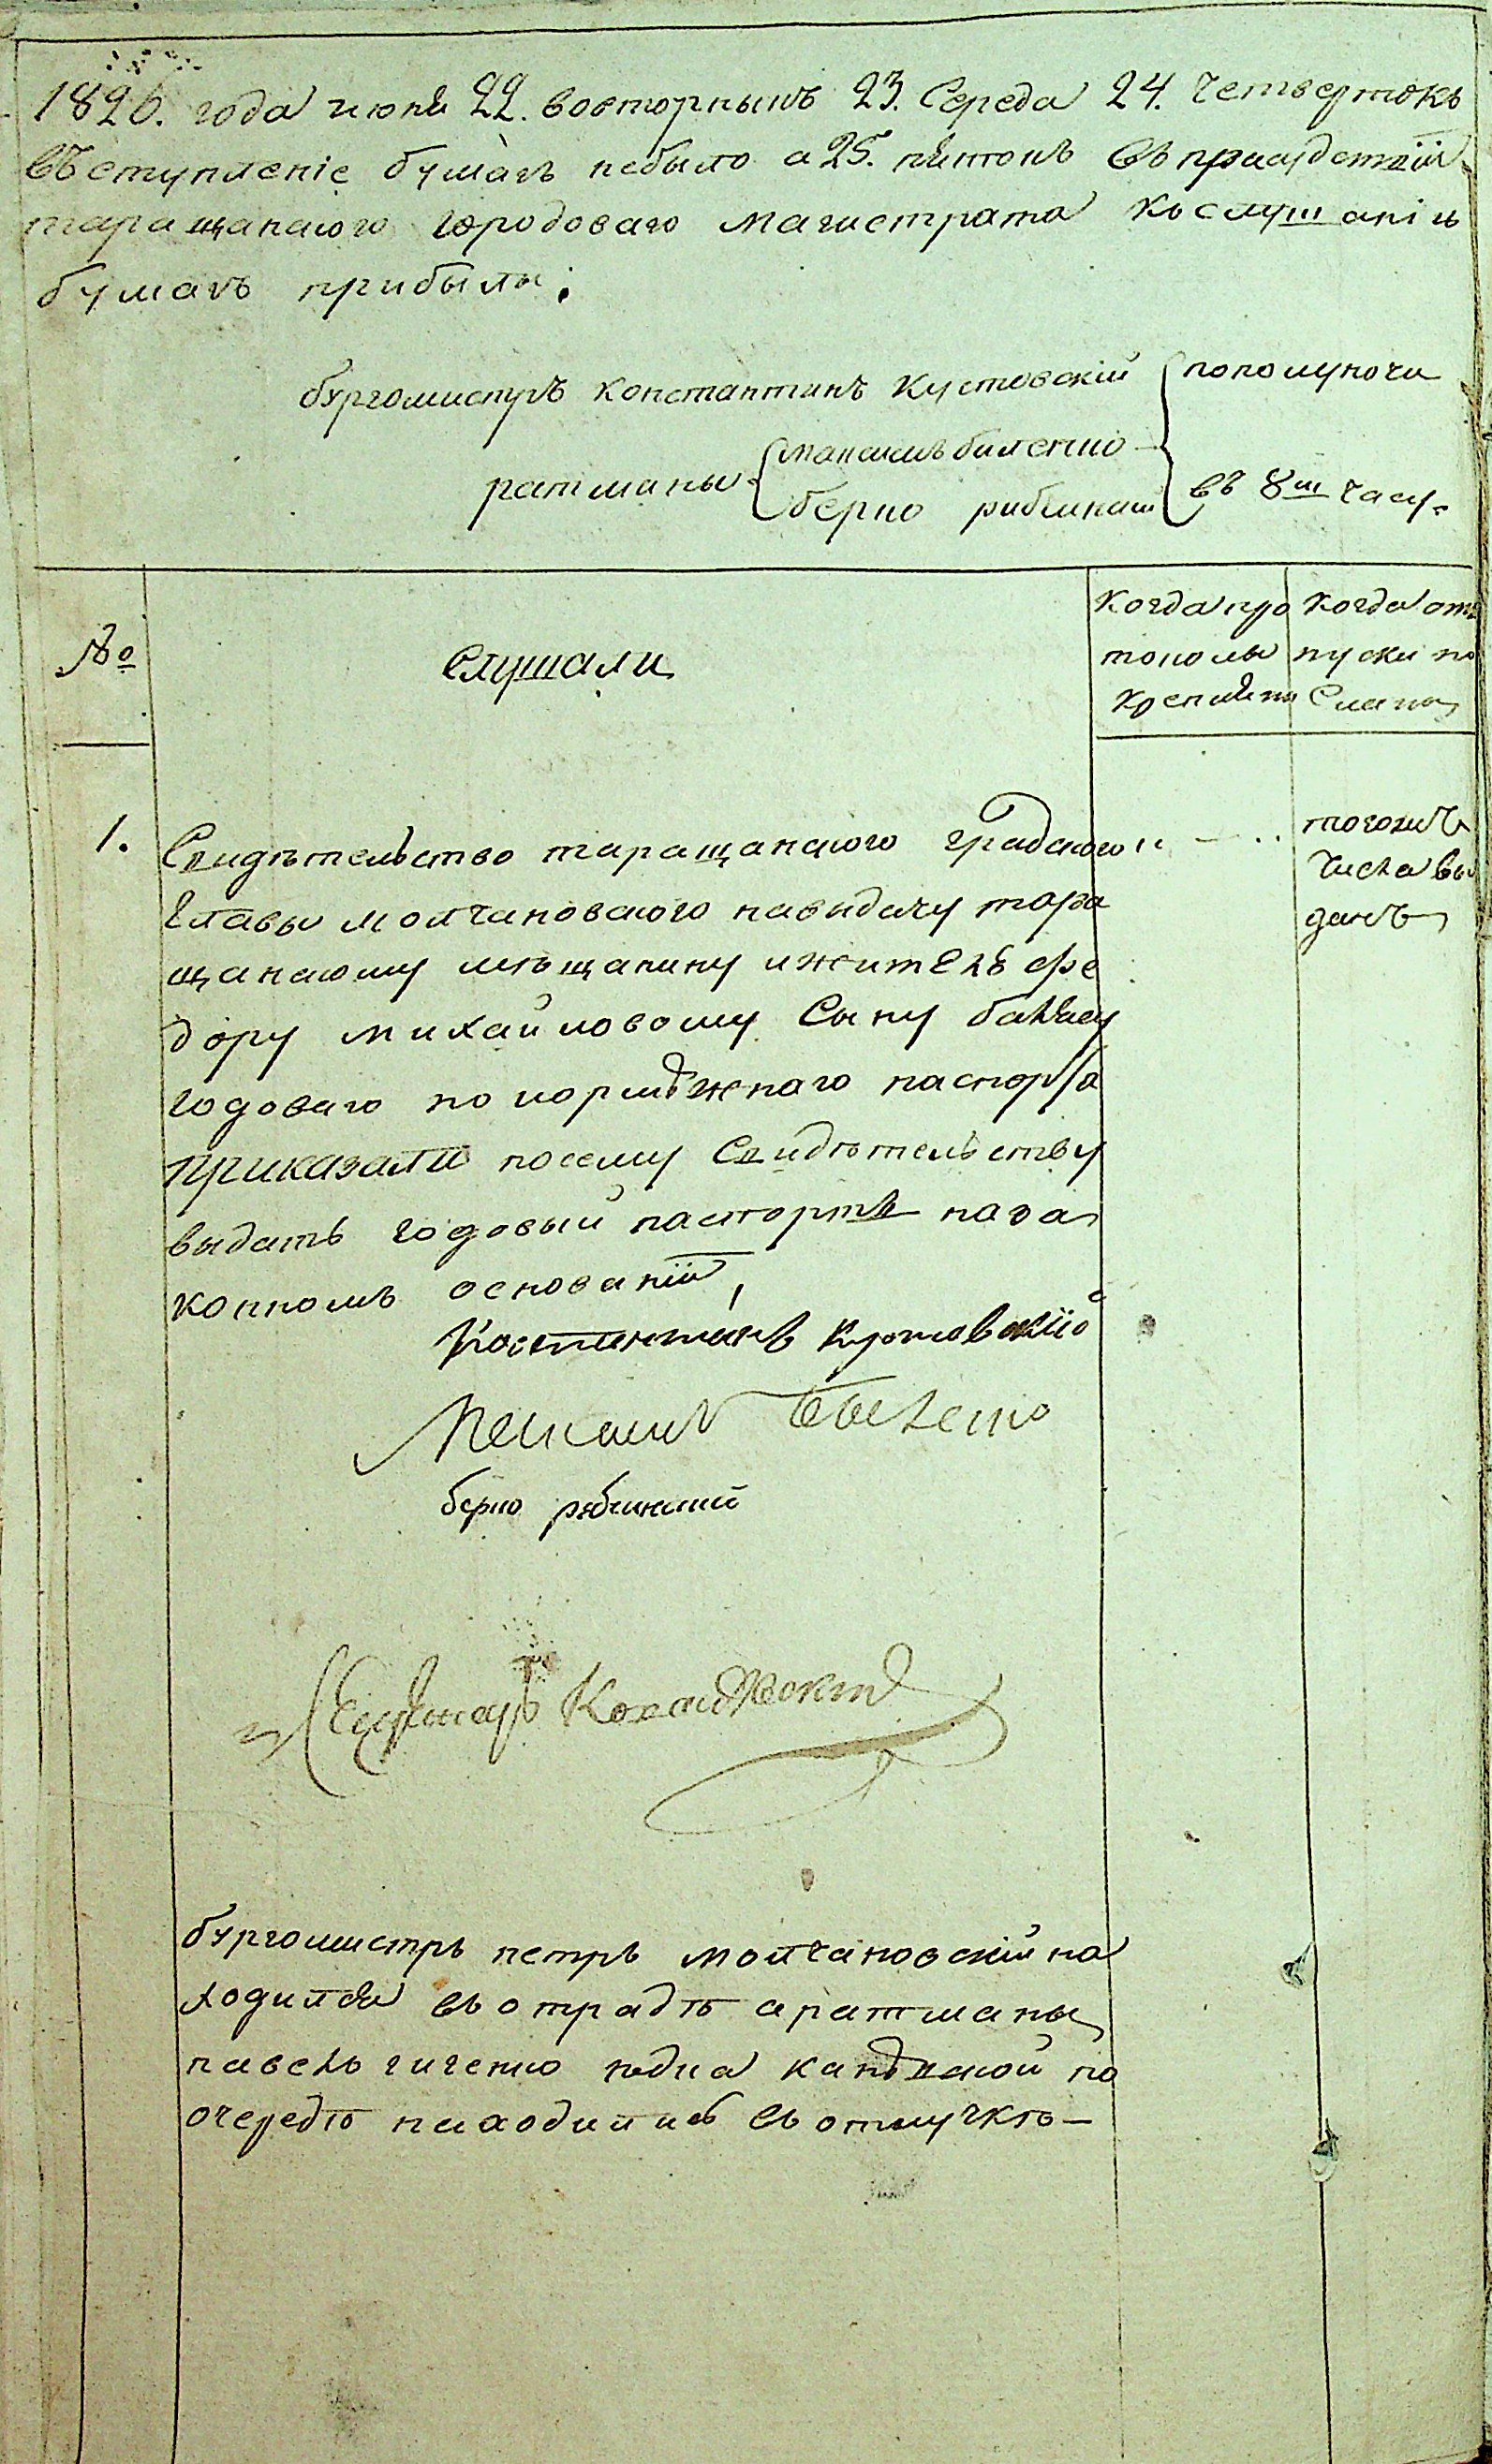 1826. года июня 22. вовторникъ 23. Середа 24. Четвертокъ
въступленіе бумагъ небыло а 25. пятокъ въ присудствіи
таращанского городоваго магистрата къ слушанію
бумагъ прибыли;
бургомистръ константинъ кустовскій
пополуночи
ратманы
максимъ биленко
берко рибчинский
въ 8м часу.
№
Слушали
Когда про
токолы
крепленны
Когда от
пуски по
Сланы
1.
Свидѣтельство таращанского градского
Главы молчановского навыдачу тара
щанскому мѣщанину ижителю фе
дору михайловому Сыну
годоваго покормѣжнаго паспорта
приказали посему Свидѣтельству
выдать годовый паспортъ на за
конномъ основаніи,
тогожъ
числа вы
данъ
Константинъ Кустовскій
Максимъ Биленко
берко рибчинский
Секретарь
бургомистръ петръ молчановскій на
ходился въ отрадѣ а ратманы
павелъ гиченко кандыской по
очередѣ находились въ отлучкѣ—